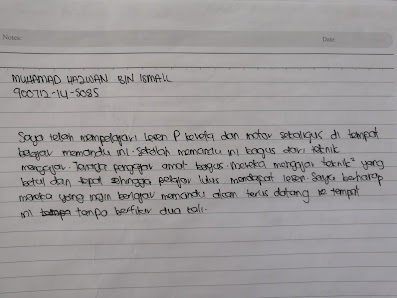 Notes:
Date:
MUHAMAD HAZWAN BIN ISMAIL
900712-14-5085
Saya telah mempelajari lesen P kereta dan motor sekaligus di tempat
belajar memandu ini. Sekolah memandu ini bagus dari teknik
mengajar. Tenaga pengajar amat bagus. Mereka mengajar teknik² yang
betul dan tepat sehingga pelajar lulus mendapat lesen. Saya berharap
mereka yang ingin belajar memandu akan terus datang ke tempat
ini tanpa berfikir dua kali.